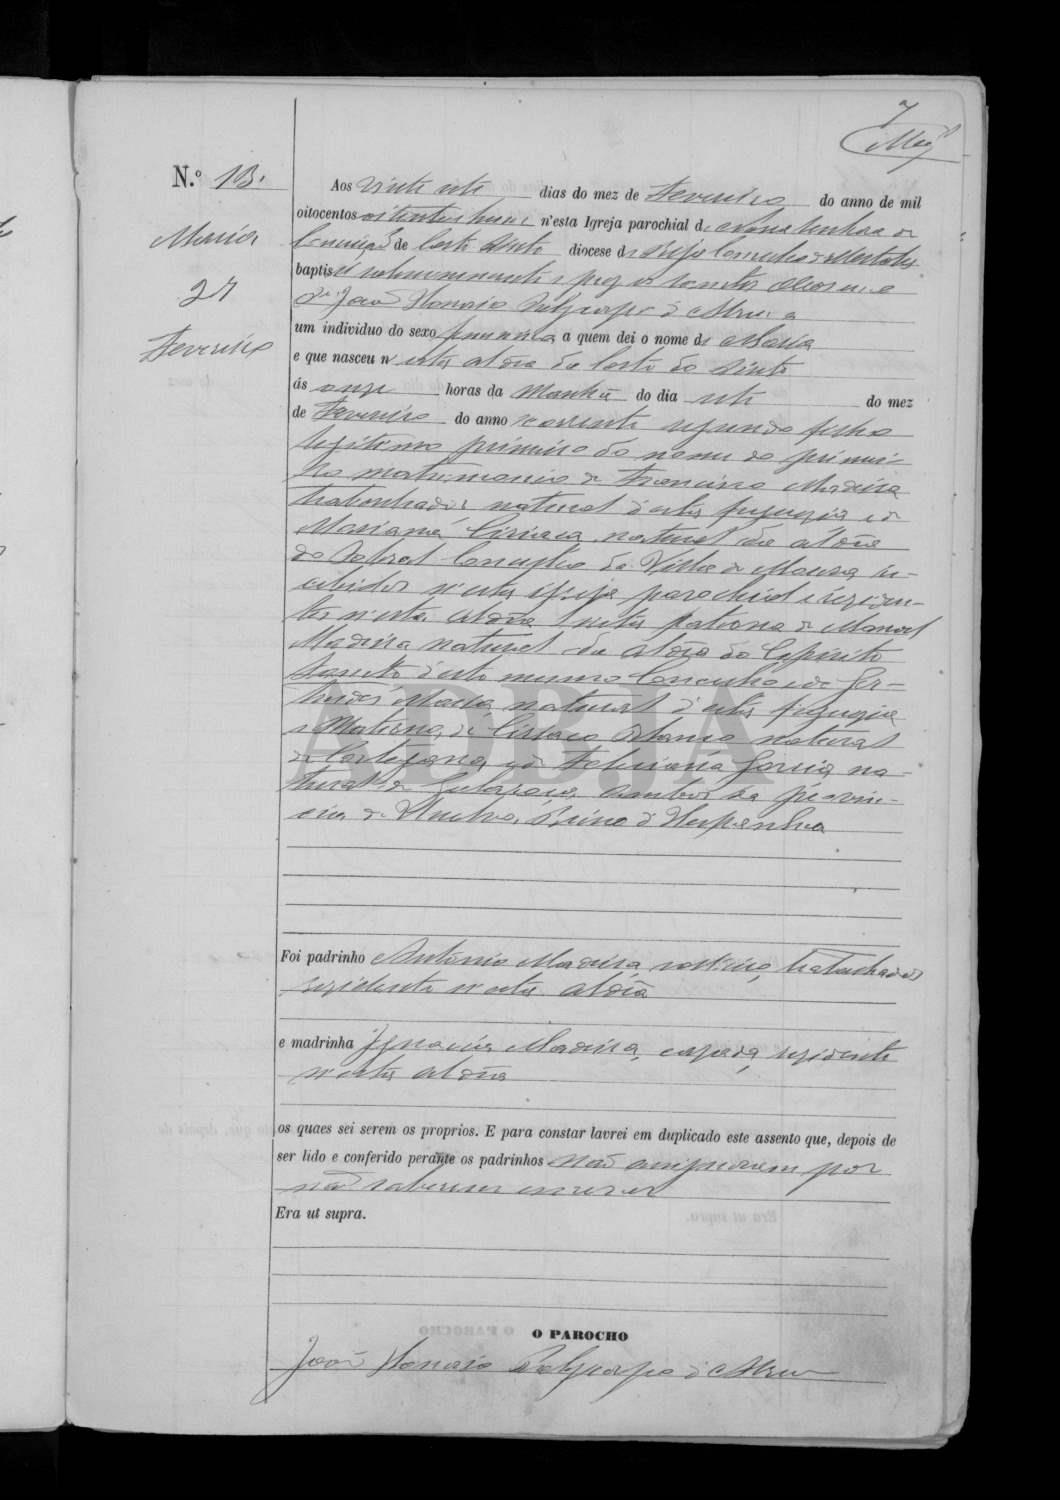 7
N.º 13.
Aos vinte sete dias do mez de Fevereiro do anno de mil
oitocentos oitenta hum n'esta Igreja parochial de Nossa Senhora da
Maria
Conceição de Corte Sinto diocese de Beja Concelho de Mertola
27
baptisei solemnemente e puz os santos Oleos eu
João Honorio d'Abreu a
Fevereiro
um individuo do sexo feminino a quem dei o nome de Maria
e que nasceu n'esta aldêa da Corte do Sinto
ás onze horas da Manhã do dia sete do mez
de Fevereiro do anno corrente segundo filho
legitimo primeiro do nome do primei-
ro matrimonio de Francisco Madeira
trabalhador natural d'esta freguezia e de
Marianna Ciriaca natural da aldêa
do Sobral Concelho da Villa de Moura re-
cebidos n'esta igreja parochial e residen-
tes n'esta aldêa neta paterna de Manoel
Madeira natural da aldêa do Espirito
Santo d'este mesmo Concelho e de Ger-
trudes Maria natural d'esta freguezia
e Materna de Ciriaco Blanco natural
de Cortegana e de Feliciana Garcia na-
tural de ambos da provin-
cia de Huelva, Reino d'Hespanha
Foi padrinho Antonio Madeira, solteiro, trabalhador
residente n'esta aldêa
e madrinha Ignacia Madeira, casada, residente
n'esta aldêa
os quaes sei serem os proprios. E para constar lavrei em duplicado este assento que, depois de
ser lido e conferido perante os padrinhos não assignaram por
não saberem escrever
Era ut supra.
O PAROCHO
João Honorio d'Abreu
ADBJA